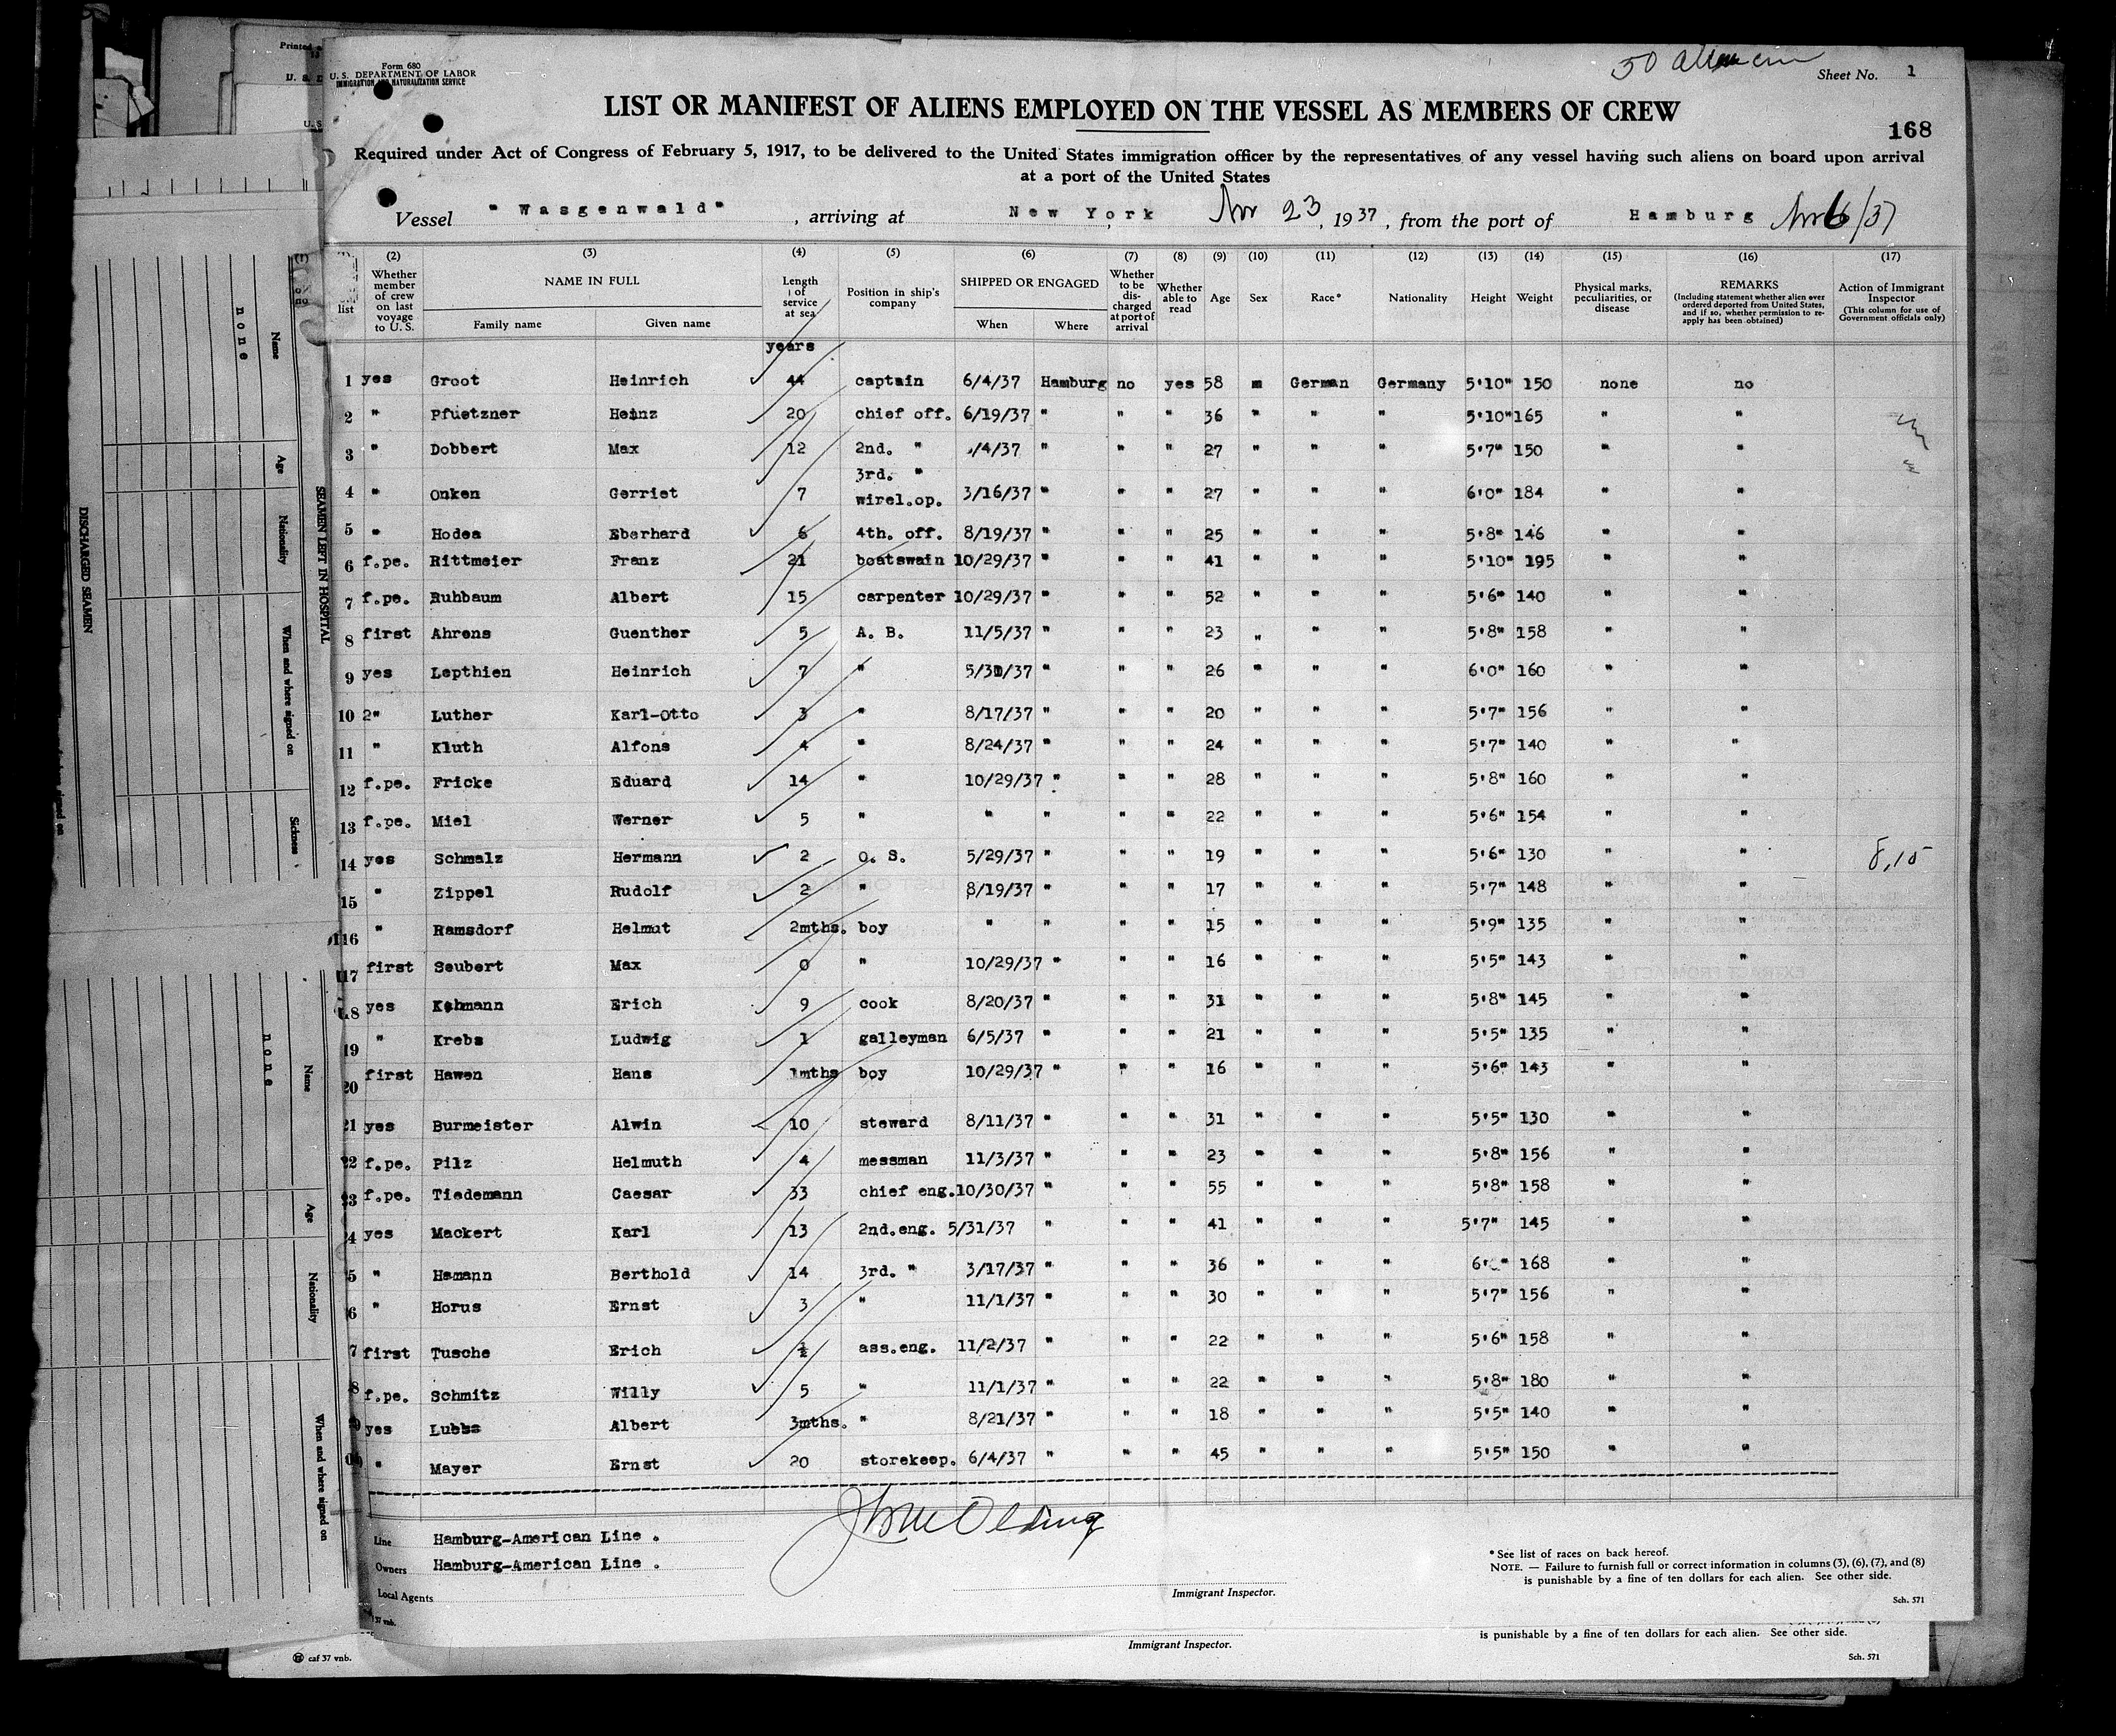 Form 680
U. S. DEPARTMENT OF LABOR
IMMIGRATION AND NATURALIZATION SERVICE
50
Sheet No. 1
LIST OR MANIFEST OF ALIENS EMPLOYED ON THE VESSEL AS MEMBERS OF CREW
168
Required under Act of Congress of February 5, 1917, to be delivered to the United States immigration officer by the representatives of any vessel having such aliens on board upon arrival
at a port of the United States
Vessel "Wasgenwald", arriving at New York, Nov 23, 1937, from the port of Hamburg Nov 6/37
(2) (3) (4) (5) (6) (7) (8) (9) (10) (11) (12) (13) (14) (15) (16) (17)
list Whether member of crew on last voyage to U. S. NAME IN FULL Family name Given name Length of service at sea Position in ship's company SHIPPED OR ENGAGED When Where Whether to be discharged at port of arrival Whether able to read Age Sex Race* Nationality Height Weight Physical marks, peculiarities, or disease REMARKS (Including statement whether alien ever ordered deported from United States, and if so, whether permission to reapply has been obtained) Action of Immigrant Inspector (This column for use of Government officials only)
years
1 yes Groot Heinrich 44 captain 6/4/37 Hamburg no yes 58 m German Germany 5'10" 150 none no
2 " Pfuetzner Heinz 20 chief off. 6/19/37 " " " 36 " " " 5'10" 165 " "
3 " Dobbert Max 12 2nd. " /4/37 " " " 27 " " " 5'7" 150 " "
4 " Onken Gerriet 7 3rd. " wirel.op. 3/16/37 " " " 27 " " " 6'0" 184 " "
5 " Hodea Eberhard 6 4th. off. 8/19/37 " " " 25 " " " 5'8" 146 " "
6 f.pe. Rittmeier Franz 21 boatswain 10/29/37 " " " 41 " " " 5'10" 195 " "
7 f.pe. Ruhbaum Albert 15 carpenter 10/29/37 " " " 52 " " " 5'6" 140 " "
8 first Ahrens Guenther 5 A. B. 11/5/37 " " " 23 " " " 5'8" 158 " "
9 yes Lepthien Heinrich 7 " 5/31/37 " " " 26 " " " 6'0" 160 " "
10 2" Luther Karl-Otto 3 " 8/17/37 " " " 20 " " " 5'7" 156 " "
11 " Kluth Alfons 4 " 8/24/37 " " " 24 " " " 5'7" 140 " "
12 f.pe. Fricke Eduard 14 " 10/29/37 " " " 28 " " " 5'8" 160 " "
13 f.pe. Miel Werner 5 " " " " " 22 " " " 5'6" 154 " "
14 yes Schmalz Hermann 2 O. S. 5/29/37 " " " 19 " " " 5'6" 130 " " 8,15
15 " Zippel Rudolf 2 " 8/19/37 " " " 17 " " " 5'7" 148 " "
16 " Ramsdorf Helmut 2mths. boy " " " " 15 " " " 5'9" 135 " "
17 first Seubert Max 0 " 10/29/37 " " " 16 " " " 5'5" 143 " "
18 yes Kohmann Erich 9 cook 8/20/37 " " " 31 " " " 5'8" 145 " "
19 " Krebs Ludwig 1 galleyman 6/5/37 " " " 21 " " " 5'5" 135 " "
20 first Hawen Hans 1mths boy 10/29/37 " " " 16 " " " 5'6" 143 " "
21 yes Burmeister Alwin 10 steward 8/11/37 " " " 31 " " " 5'5" 130 " "
22 f.pe. Pilz Helmuth 4 messman 11/3/37 " " " 23 " " " 5'8" 156 " "
23 f.pe. Tiedemann Caesar 33 chief eng. 10/30/37 " " " 55 " " " 5'8" 158 " "
4 yes Mackert Karl 13 2nd.eng. 5/31/37 " " " 41 " " " 5'7" 145 " "
5 " Hamann Berthold 14 3rd. " 3/17/37 " " " 36 " " " 168 " "
6 " Horus Ernst 3 " 11/1/37 " " " 30 " " " 5'7" 156 " "
7 first Tusche Erich ½ ass.eng. 11/2/37 " " " 22 " " " 5'6" 158 " "
8 f.pe. Schmitz Willy 5 " 11/1/37 " " " 22 " " " 5'8" 180 " "
9 yes Lubbs Albert 3mths. " 8/21/37 " " " 18 " " " 5'5" 140 " "
0 " Mayer Ernst 20 storekeep. 6/4/37 " " " 45 " " " 5'5" 150 " "
Line Hamburg-American Line .
Owners Hamburg-American Line .
Local Agents
Immigrant Inspector.
*See list of races on back hereof.
NOTE. — Failure to furnish full or correct information in columns (3), (6), (7), and (8)
is punishable by a fine of ten dollars for each alien. See other side.
Sch. 571
37 vnb.
Immigrant Inspector.
is punishable by a fine of ten dollars for each alien. See other side.
Sch. 571
caf 37 vnb.
DISCHARGED SEAMEN
SEAMEN LEFT IN HOSPITAL
Name
none
Age
Nationality
When and where signed on
Sickness
Name
none
Age
Nationality
When and where signed on